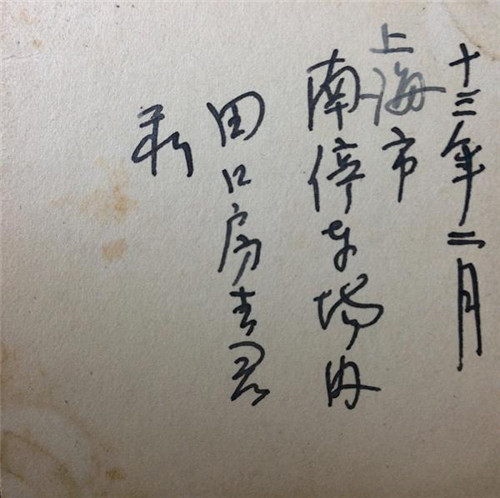 十三年二月
上海市
南停车场内
田口房吉君